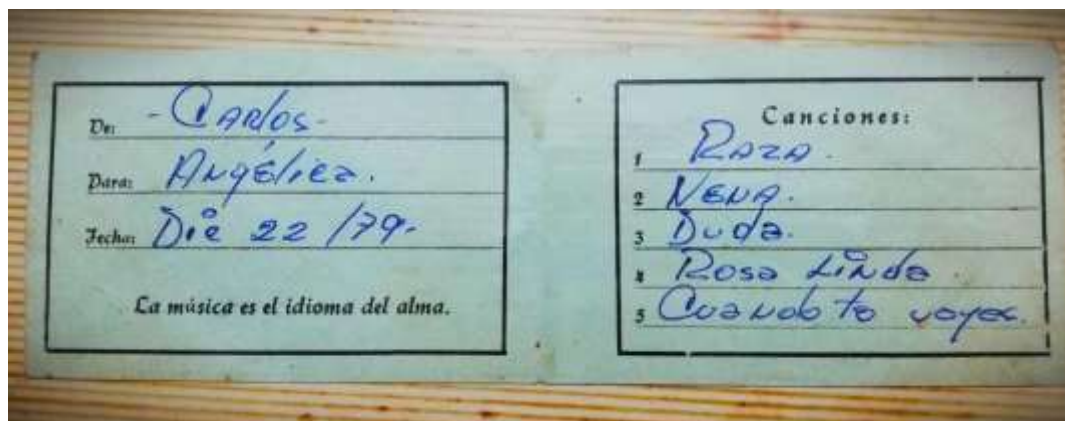 De: - Carlos -
Para: Angélica.
Fecha: Dic 22 /79.
La música es el idioma del alma.
Canciones:
1 Raza.
2 Nena.
3 Duda.
4 Rosa Linda.
5 Cuando te vayas.